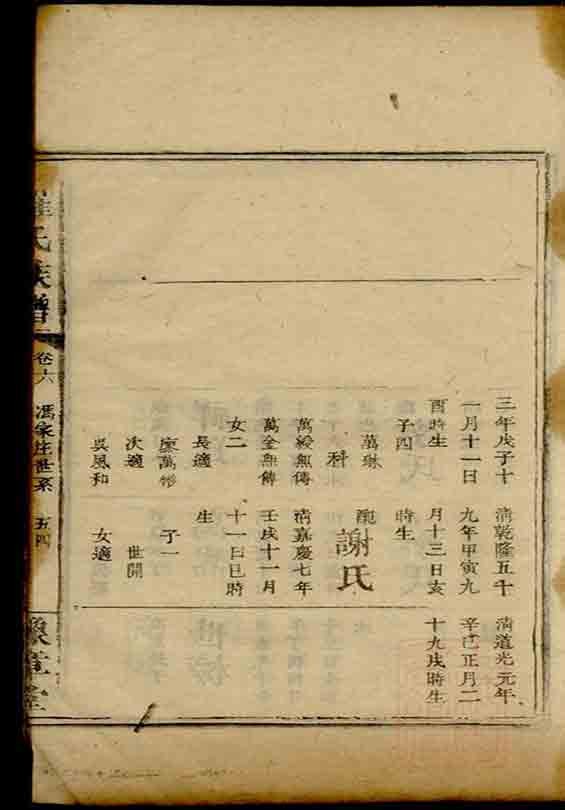 三年戊子十
一月十一日
酉時生
子四
萬琳
科
萬綬無傳
萬全無傳
女二
長適
廖萬彬
次適
吳鳳和
清乾隆五十
九年甲寅九
月十三日亥
時生
配謝氏
清嘉慶七年
壬戌十一月
十一日巳時
生
子一
世開
女適
清道光元年
辛巳正月二
十九戌時生
羅氏族譜 卷六 馮家庄世系 五四 豫章堂